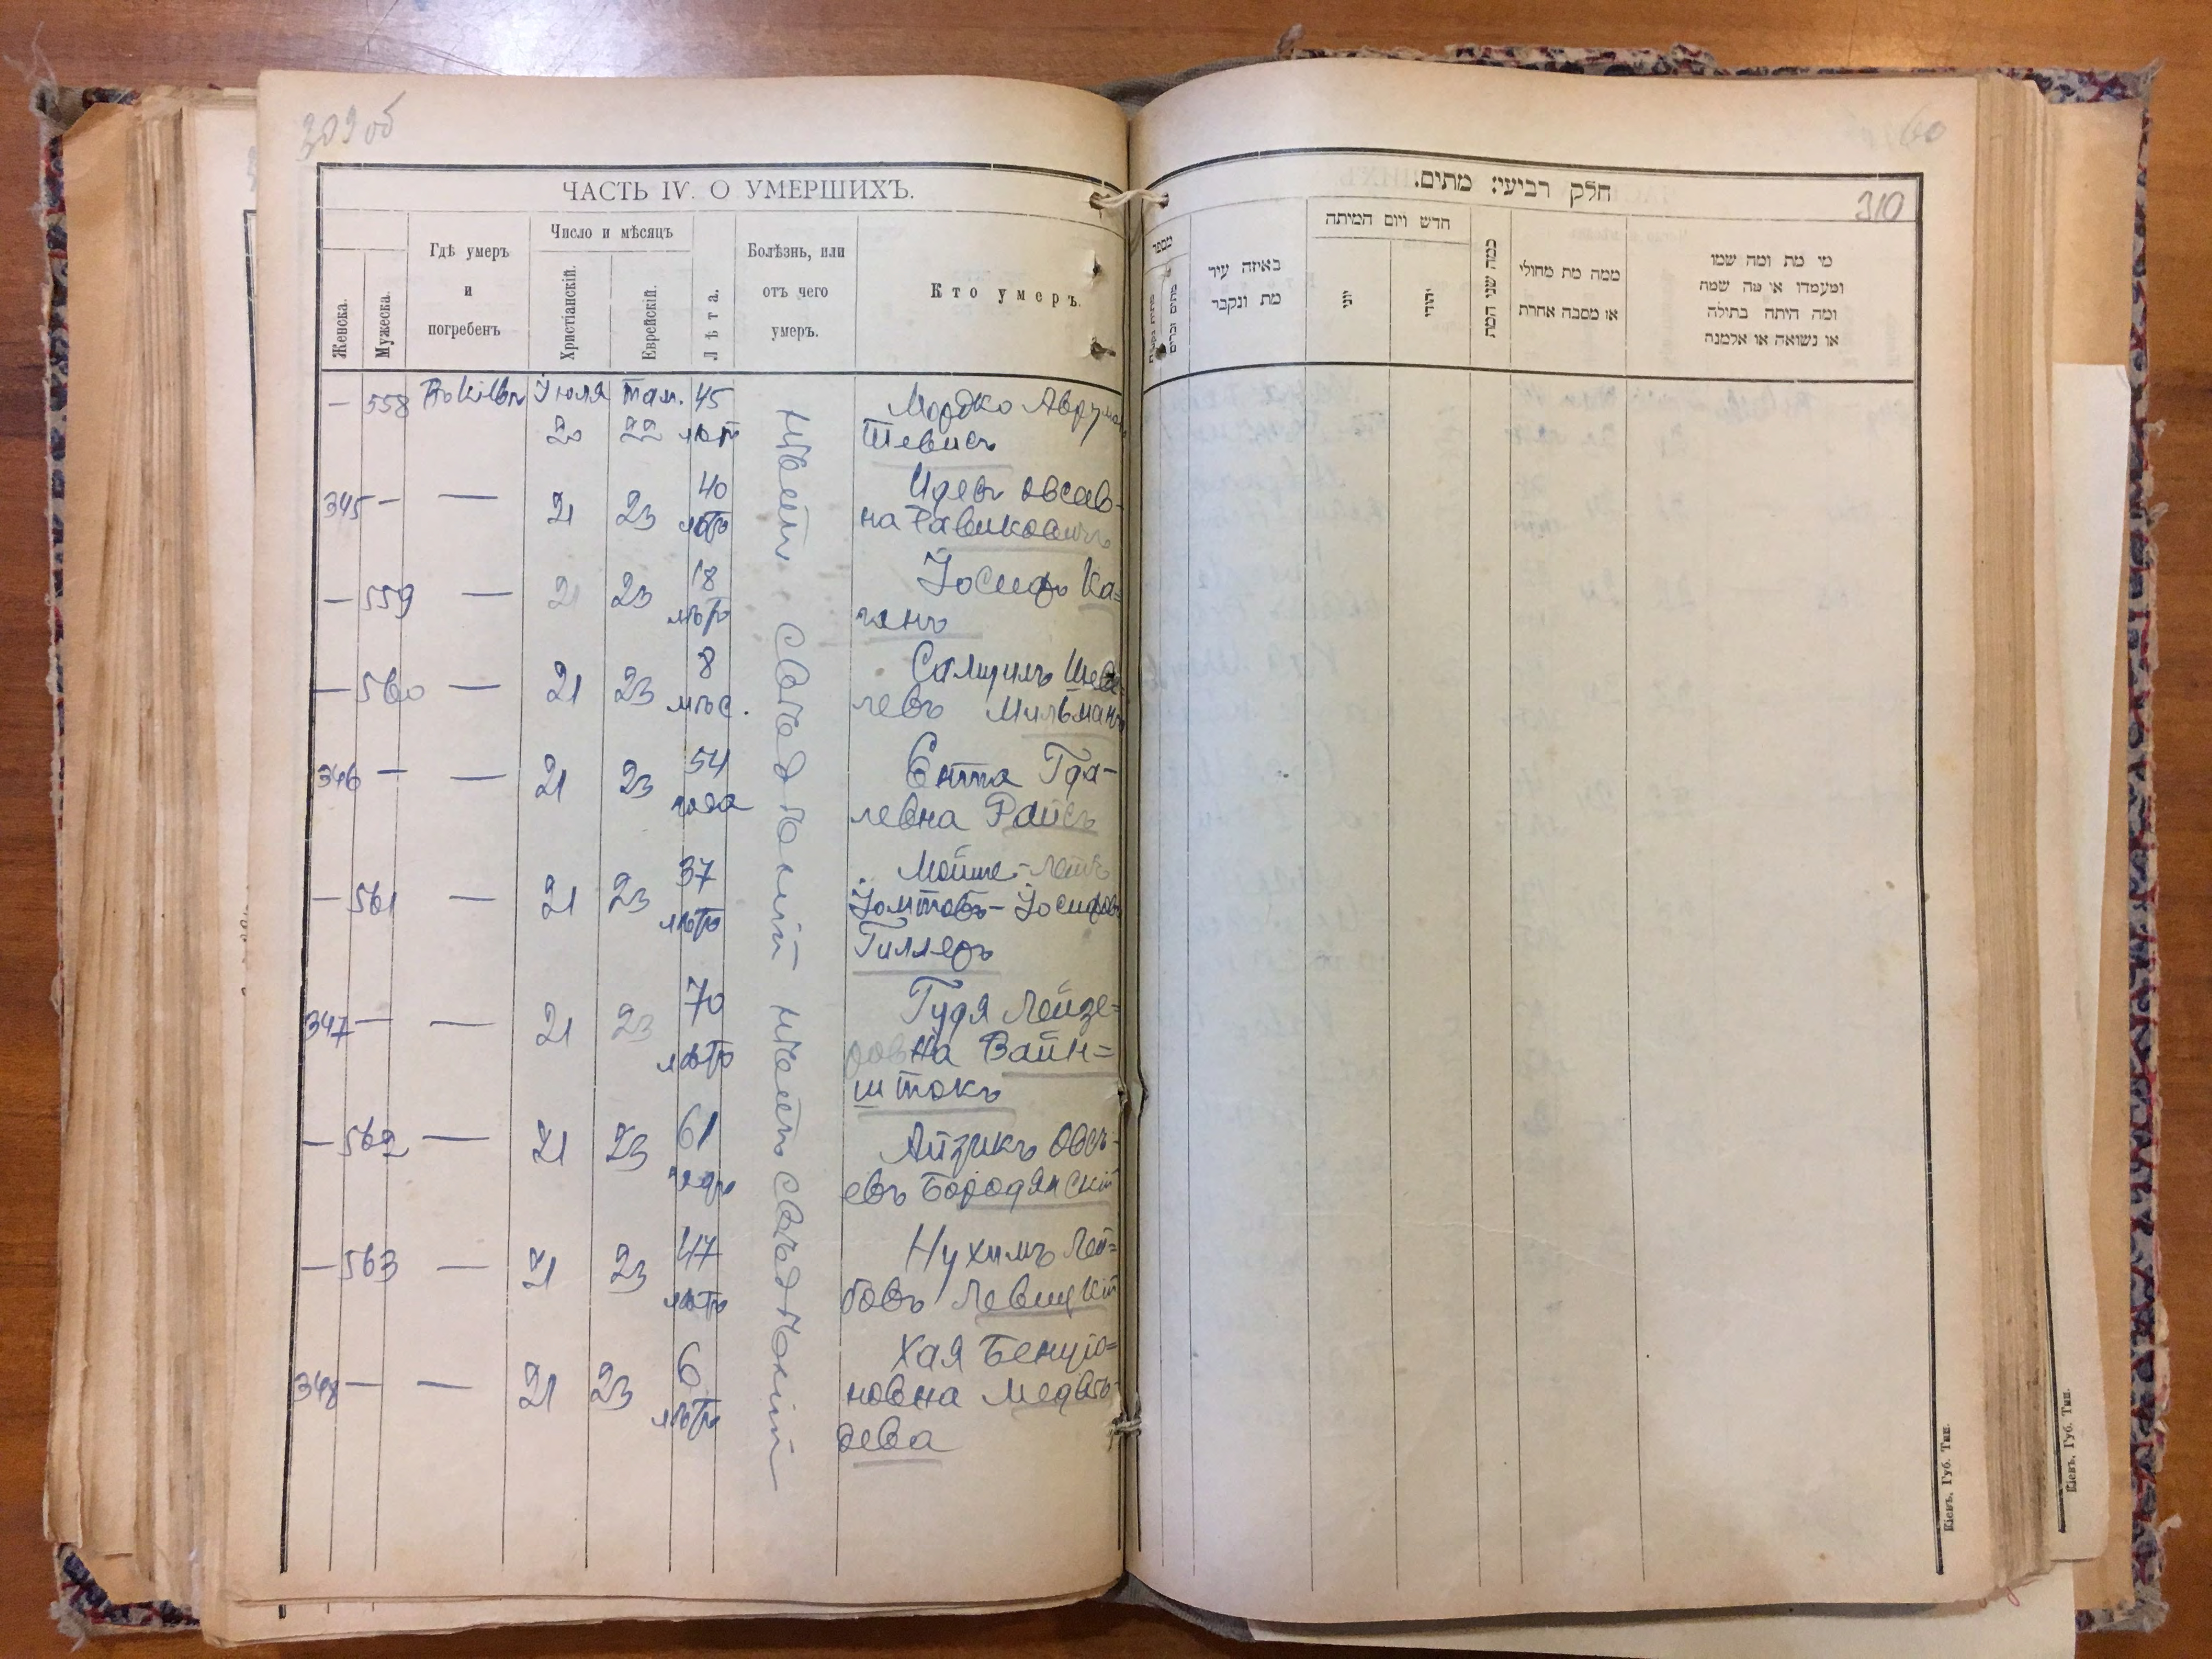 309 об
ЧАСТЬ IV. О УМЕРШИХЪ.
Женска.
Мужеска.
Гдѣ умеръ
и
погребенъ
Число и мѣсяцъ
Христіанскій.
Еврейскій.
Лѣта.
Болѣзнь, или
отъ чего
умеръ.
Кто умеръ.
— 558 Въ Кіевѣ Іюля Там. 45 Мордко Аврумовъ
20 22 лѣтъ Тевисъ
345 — — 21 23 40 Идесъ Овсѣев-
лѣтъ на Равиковичъ
— 559 — 21 23 18 Іосифъ Ка=
лѣтъ ганъ
— 560 — 21 23 8 Самуилъ
мѣс. левъ Мильманъ
346 — — 21 23 54 Ента Гда-
года левна Райсъ
— 561 — 21 23 37 Мойше-Лейбъ
лѣтъ Іомтовъ-Іосифовъ
Гиллеръ
347 — — 21 23 70 Гудя Лейзе=
лѣтъ ровна Вайн=
штокъ
— 562 — 21 23 61 Айзикъ Овсѣ-
годъ евъ Бородянскій
— 563 — 21 23 47 Нухимъ Лей=
лѣтъ бовъ Левицкій
348 — — 21 23 6 Хая Бенціо=
лѣтъ новна Медвѣ-
дева
310
חלק רביעי: מתים.
מספר
באיזה עיר
מת ונקבר
חדש ויום המיתה
יוני
יהודי
כמה שני המת
ממה מת מחולי
או מסבה אחרת
מי מת ומה שמו
ומעמדו או מה שמה
ומה היתה בתילה
או נשואה או אלמנה
Кіевъ, Губ. Тип.
Кіевъ, Губ. Тип.